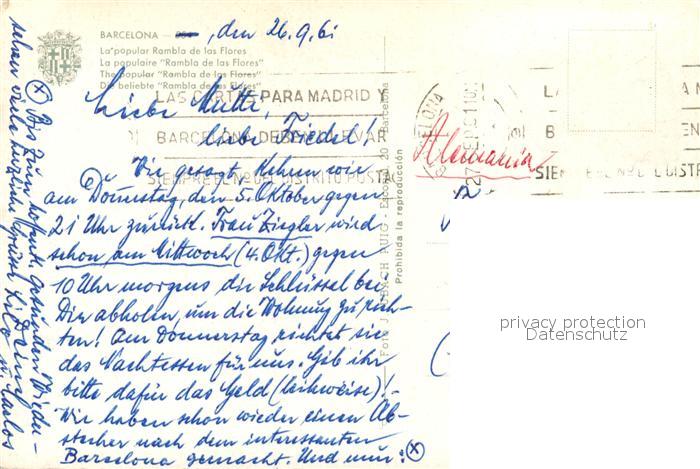 BARCELONA —
La popular Rambla de las Flores
La populaire "Rambla de las Flores"
The popular "Rambla de las Flores"
Die beliebte "Rambla de las Flores"
, den 26.9.61
Liebe Mutti,
liebe Friedel!
Wie gesagt, kehren wir
am Donnerstag, den 5. Oktober gegen
21 Uhr zurück. Frau Ziegler wird
schon am Mittwoch (4. Okt.) gegen
10 Uhr morgens die Schlüssel bei
Dir abholen, um die Wohnung zu rich-
ten! Am Donnerstag richtet sie
das Nachtessen für uns. Gib ihr
bitte dafür das Geld (leihweise)! -
Wir haben schon wieder einen Ab-
stecher nach dem interessanten
Barcelona gemacht. Und nun: ⊗
⊗ Bis zum hoffentl. gesunden Wieder-
sehen viele herzliche Grüsse
Lilo u. Carlos
LAS CARTAS PARA MADRID Y
BARCELONA DEBEN LLEVAR
SIEMPRE EL Nº DEL DISTRITO POSTAL
Prohibida la reproducción
Alemania
privacy protection
Datenschutz